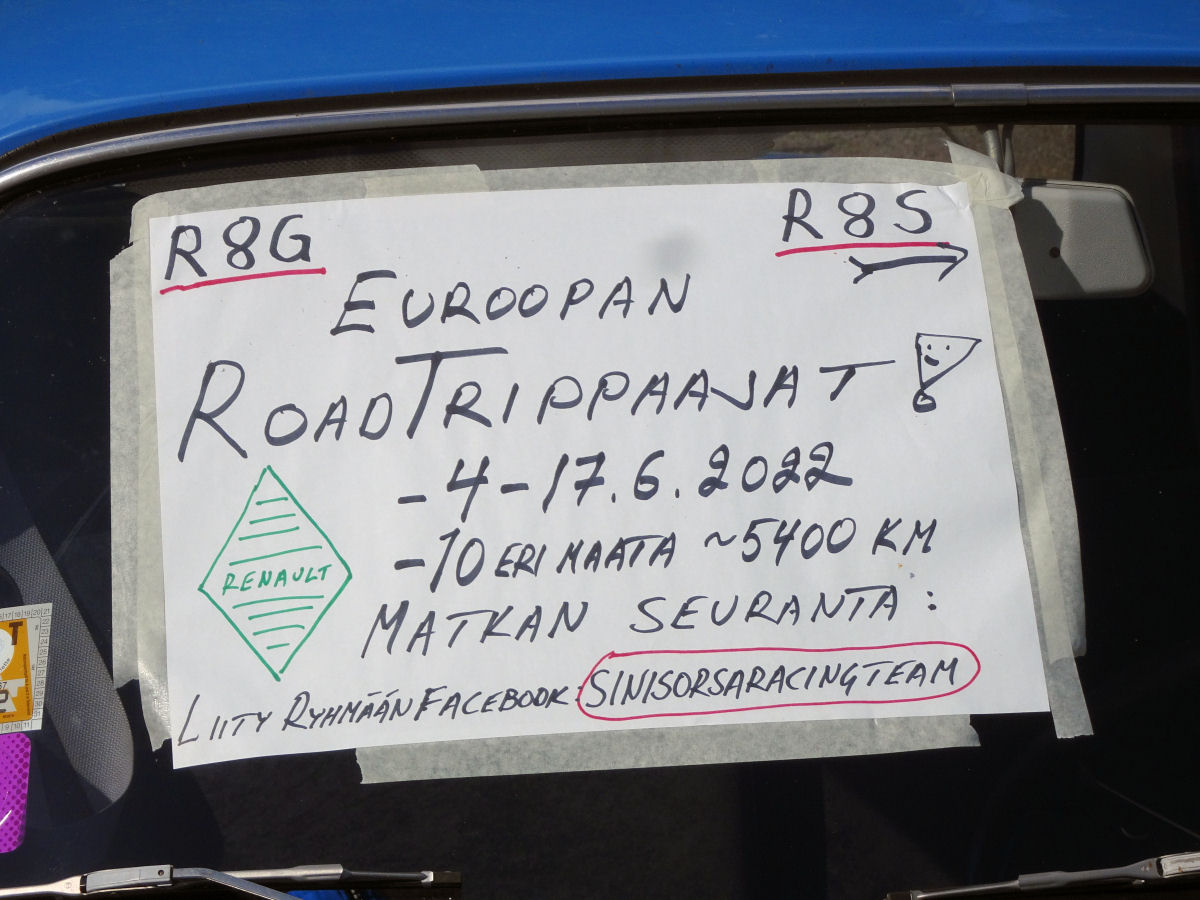 R8G
R8S
EUROOPAN
ROADTRIPPAAJAT!
-4-17.6.2022
-10 ERI MAATA ~5400 KM
RENAULT
MATKAN SEURANTA:
LIITY RYHMÄÄN FACEBOOK: SINISORSARACINGTEAM